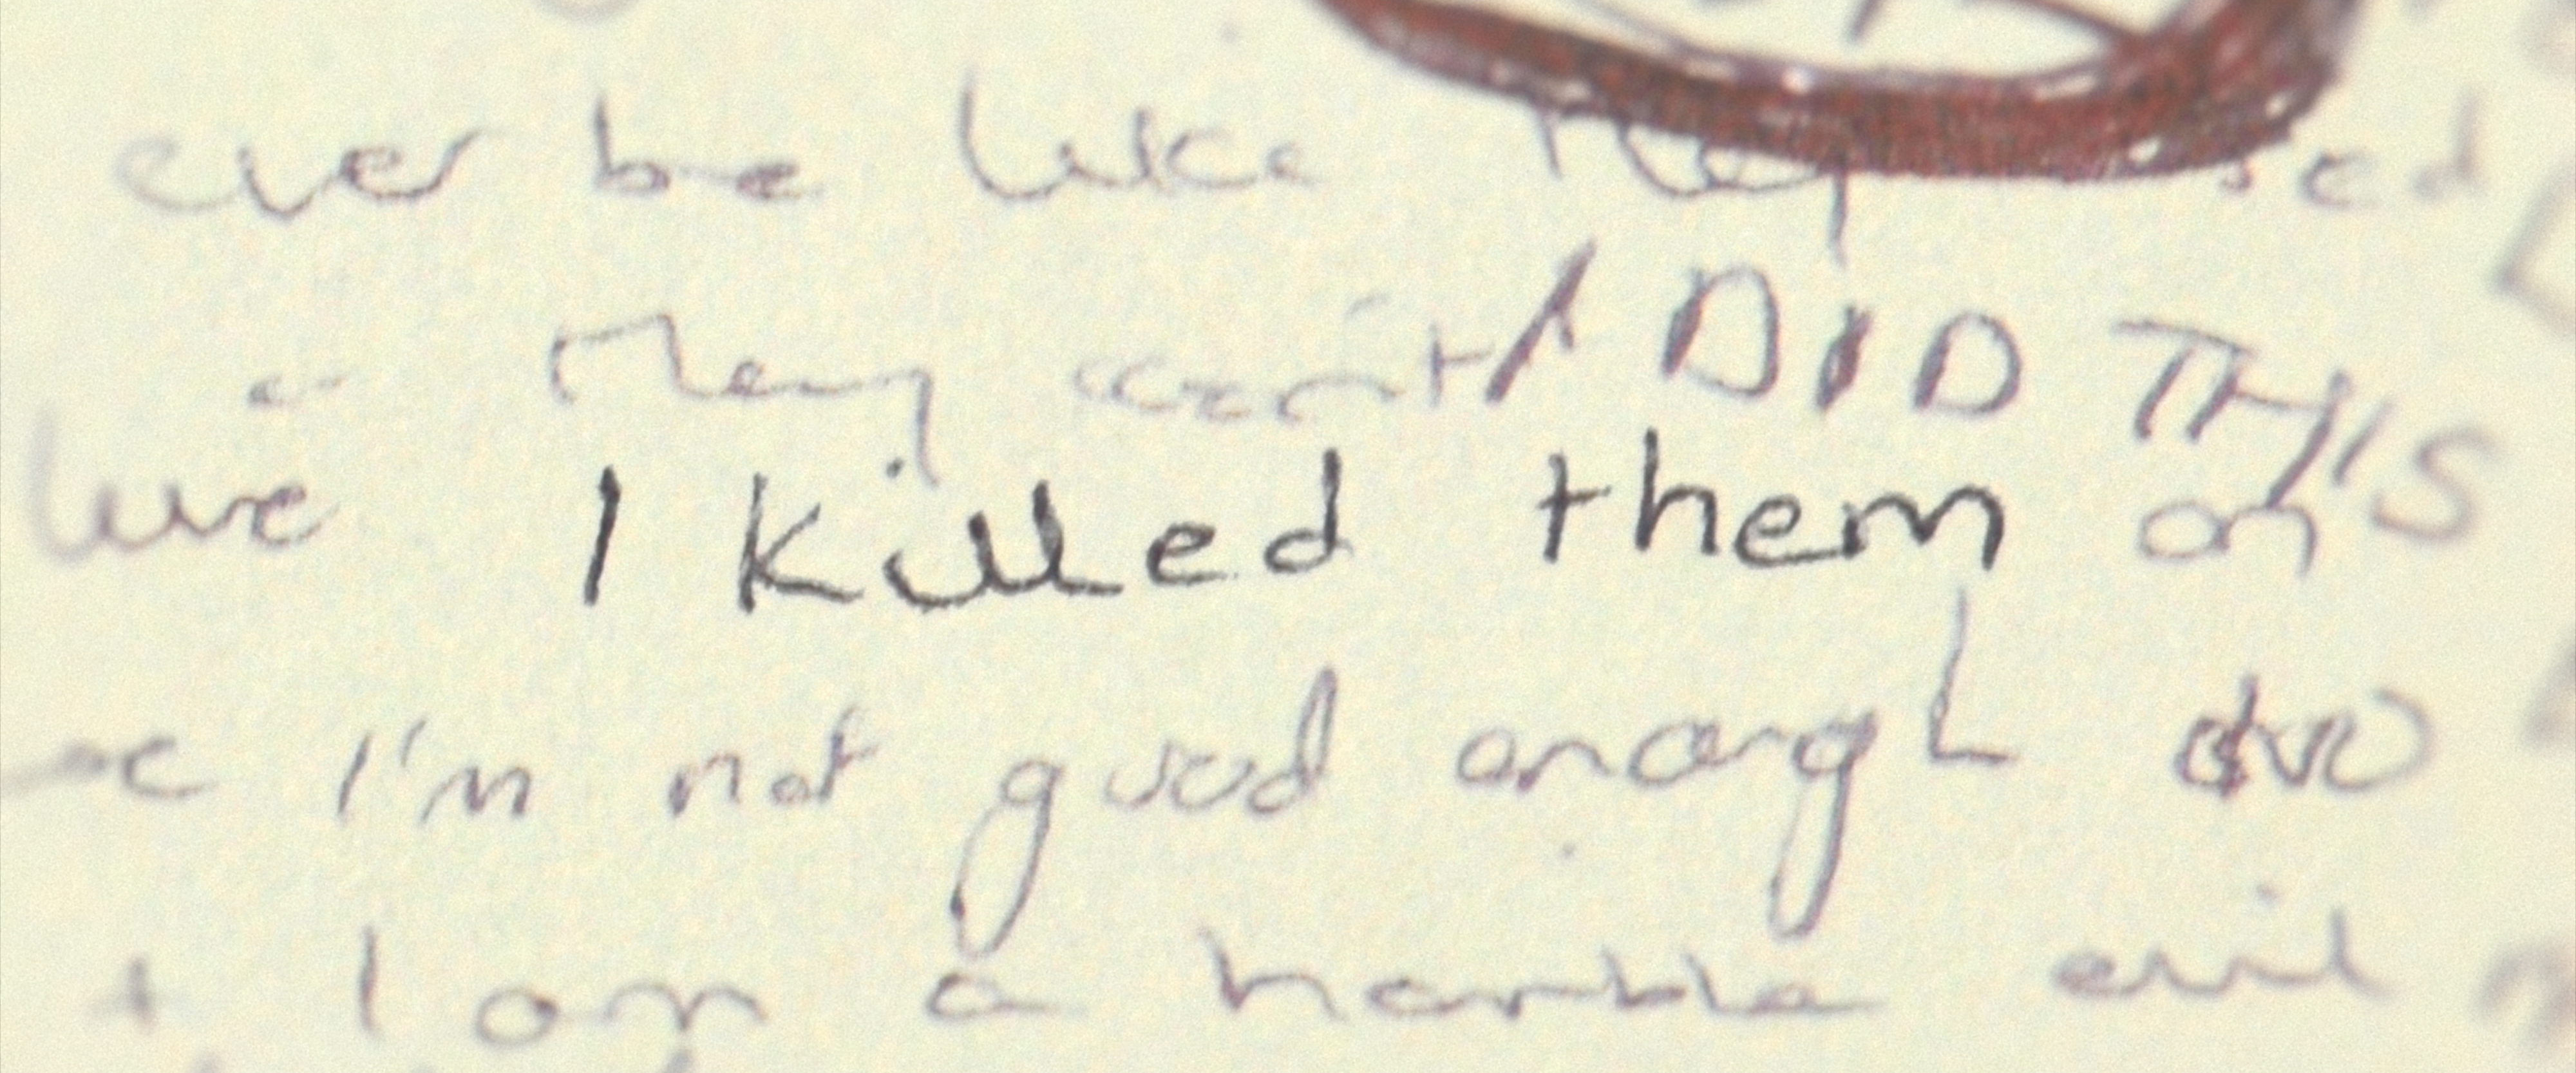 ever be like they used
they can't I DID THIS
I killed them on
I'm not good enough
+ I am a horrible evil